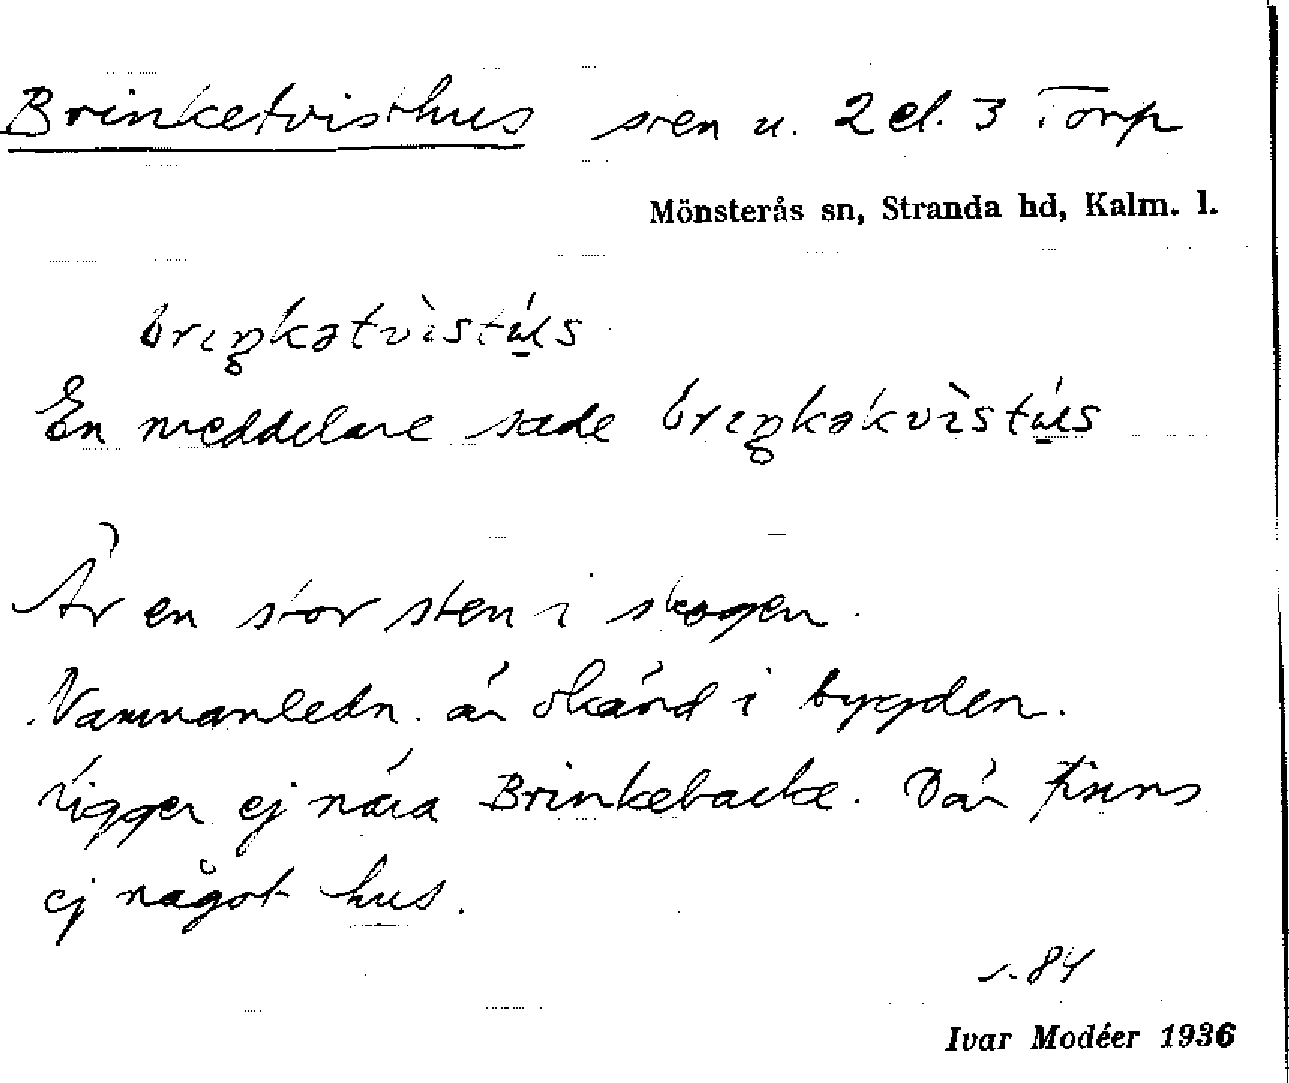 Brinketvisthus sten u. 2 el. 3 Torp
Mönsterås sn, Stranda hd, Kalm. l.
briŋkətvìstú̱s
En meddelare sade briŋkəkvìstú̱s
Är en stor sten i skogen.
Namnanledn. är okänd i bygden.
Ligger ej nära Brinkebacke. Där finns
ej något hus.
s. 84
Ivar Modéer 1936